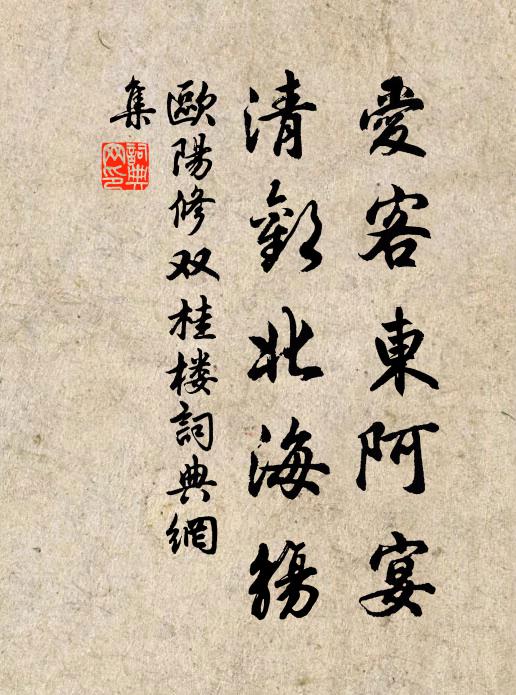 愛客東阿宴
清歡北海觴
歐陽修双桂楼詞典網
集
詞典网印